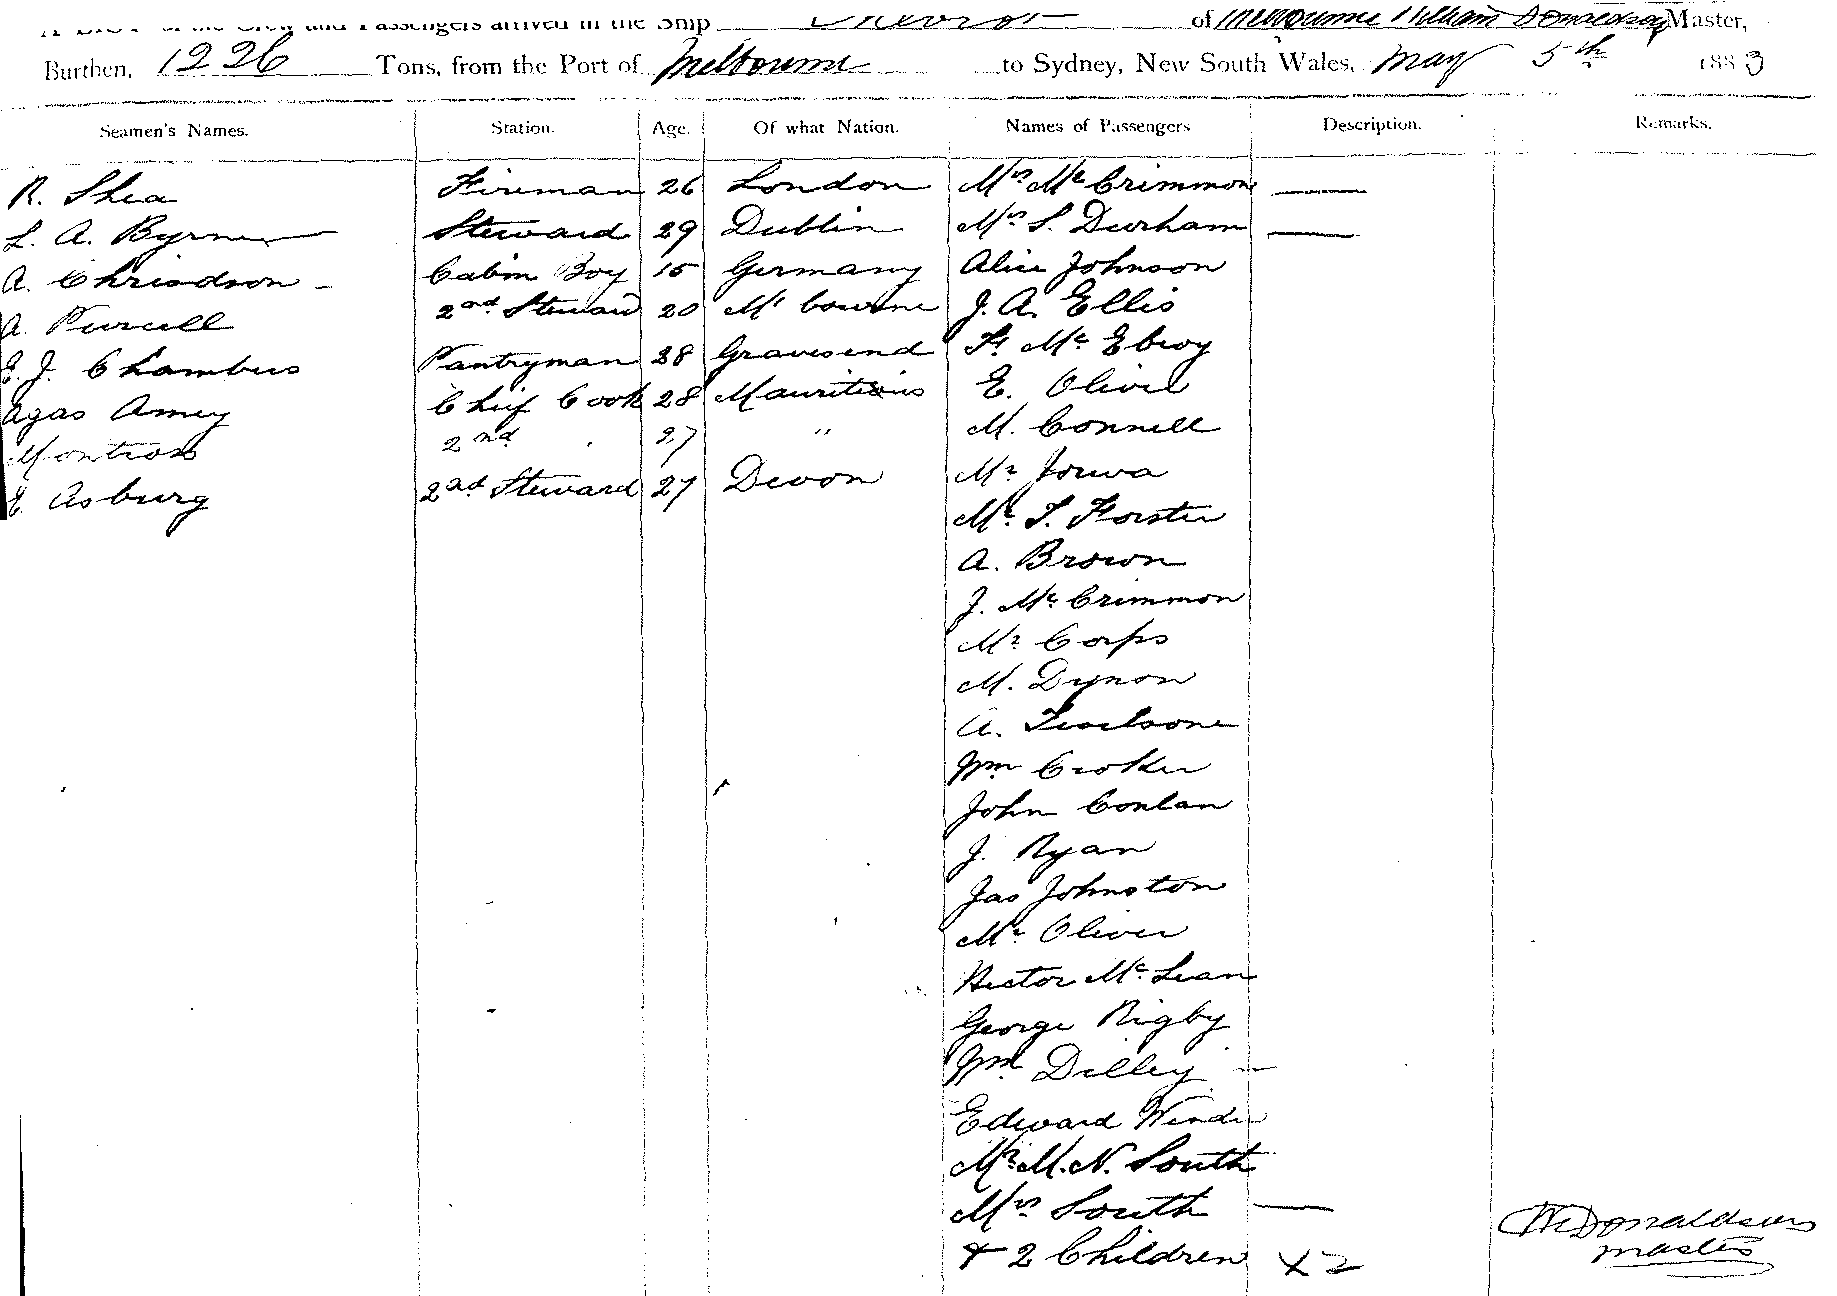 A LIST of the Crew and Passengers arrived in the Ship Cheviot of Melbourne William Donaldson Master,
Burthen, 1226 Tons, from the Port of Melbourne to Sydney, New South Wales, May 5th 1883
Seamen's Names. Station. Age. Of what Nation. Names of Passengers Description. Remarks.
R. Shea Fireman 26 London Mrs Mc Crimmon
L. A. Byrne Steward 29 Dublin Mrs S. Durham
A. Chrisdson Cabin Boy 15 Germany Alice Johnson
A. Purcell 2nd Steward 20 J. A. Ellis
E. J. Chambers Pantryman 28 Gravesend Mc Elroy
Agas Amey Chief Cook 28 Mauritius E. Oliver
2nd 27 " M. Connell
E. Asburg 2nd Steward 27 Devon Mr
Mr. T. Forster
A. Brown
J. Mc Crimmon
Mr Corps
M. Dynon
A.
Wm Croker
John Conlan
J. Ryan
Jas Johnston
Mr Oliver
Hector Mc Lean
George Rigby
Wm Dilley
Edward
Mr M. N. South
Mrs South
+ 2 Children x 2
W Donaldson
master